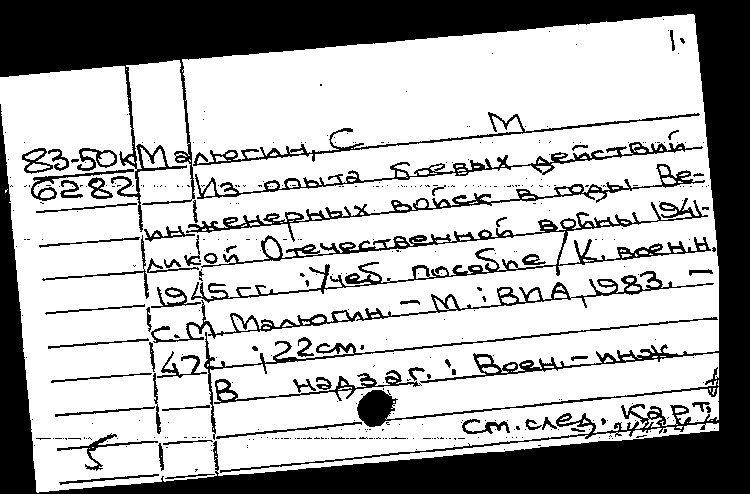 1.
83-50к Малюгин, С М
6282 Из опыта боевых действий
инженерных войск в годы Ве-
ликой Отечественной войны 1941-
1945 гг. : Учеб. пособие / К. воен. н.
С. М. Малюгин. – М. : ВИА, 1983. –
47с. ; 22см.
В надзаг. : Воен.-инж.
см. след. карт
5